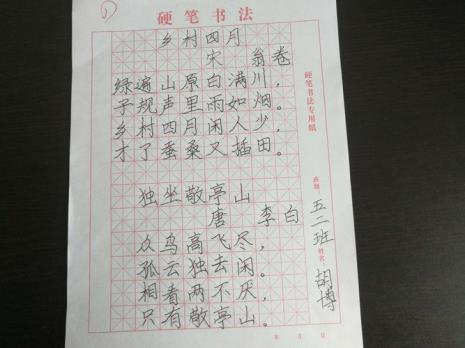 ①
硬笔书法
乡村四月
宋 翁卷
绿遍山原白满川,
子规声里雨如烟。
乡村四月闲人少,
才了蚕桑又插田。
独坐敬亭山
唐 李白
众鸟高飞尽,
孤云独去闲。
相看两不厌,
只有敬亭山。
硬笔书法专用纸
班级:五二班 姓名 胡博
年 月 日